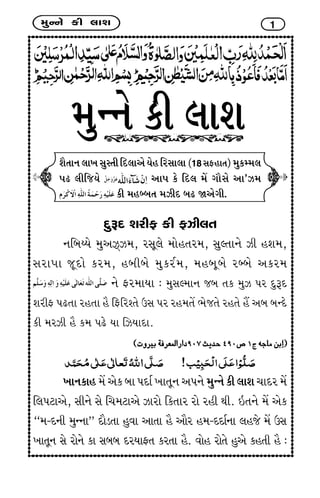 મુન્ને કી લાશ 1
اَلْحَمْدُ لِلّٰهِ رَبِّ الْعٰلَمِيْنَ وَالصَّلٰوةُ وَالسَّلَامُ عَلٰى سَيِّدِ الْمُرْسَلِيْنَ
اَمَّا بَعْدُ فَاَعُوْذُ بِاللّٰهِ مِنَ الشَّيْطٰنِ الرَّجِيْمِ بِسْمِ اللّٰهِ الرَّحْمٰنِ الرَّحِيْمِ
મુન્ને કી લાશ
શૈતાન લાખ સુસ્તી દિલાએ યેહ રિસાલા (18 સફહાત) મુકમ્મલ
પઢ લીજિયે اِنْ شَآءَاللّٰه عَزَّوَجَلَّ આપ કે દિલ મેં ગૌસે આ'ઝમ
عَلَيْهِ رَحْمَةُ اللّٰهِ الْاَكْرَم કી મહબ્બત મઝીદ બઢ જાએગી.
દુરૂદ શરીફ કી ફઝીલત
નબિય્યે મુઅઝ્ઝમ, રસૂલે મોહતરમ, સુલ્તાને ઝી હશમ,
સરાપા જૂદો કરમ, હબીબે મુકર્રમ, મહબૂબે રબ્બે અકરમ
صَلَّى اللّٰهُ تَعَالٰى عَلَيْهِ وَاٰلِهٖ وَسَلَّم ને ફરમાયા : મુસલ્માન જબ તક મુઝ પર દુરૂદ
શરીફ પઢતા રહતા હૈ ફિરિશ્તે ઉસ પર રહમતેં ભેજતે રહતે હૈં અબ બન્દે
કી મરઝી હૈ કમ પઢે યા ઝિયાદા.
(ابن ماجه ج۱ ص۴۹۰ حديث ۹۰۷ دارالمعرفة بيروت)
صَلُّوْا عَلَى الْحَبِيْب! صَلَّى اللّٰهُ تَعَالٰى عَلٰى مُحَمَّد
ખાનકાહ મેં એક બા પર્દા ખાતૂન અપને મુન્ને કી લાશ ચાદર મેં
લિપટાએ, સીને સે ચિમટાએ ઝારો કિતાર રો રહી થી. ઇતને મેં એક
“મ-દની મુન્ના” દૌડતા હુવા આતા હૈ ઔર હમ-દર્દાના લહજે મેં ઉસ
ખાતૂન સે રોને કા સબબ દરયાફ્ત કરતા હૈ. વોહ રોતે હુએ કહતી હૈ :